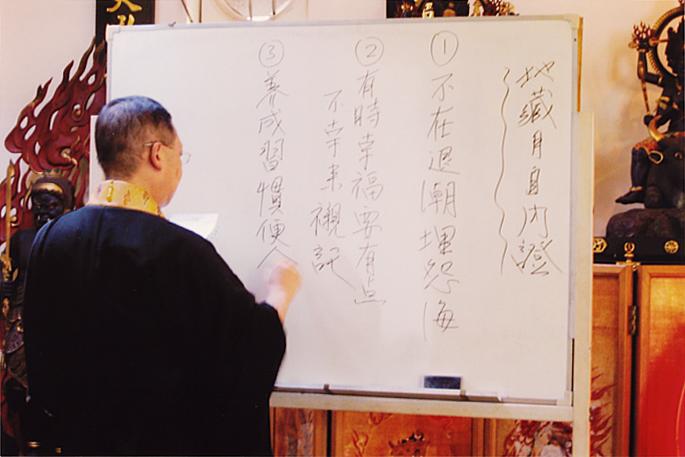 地藏月自内證
① 不在退潮埋怨海
② 有時幸福要有点
不幸来襯託
③ 養成習慣便人